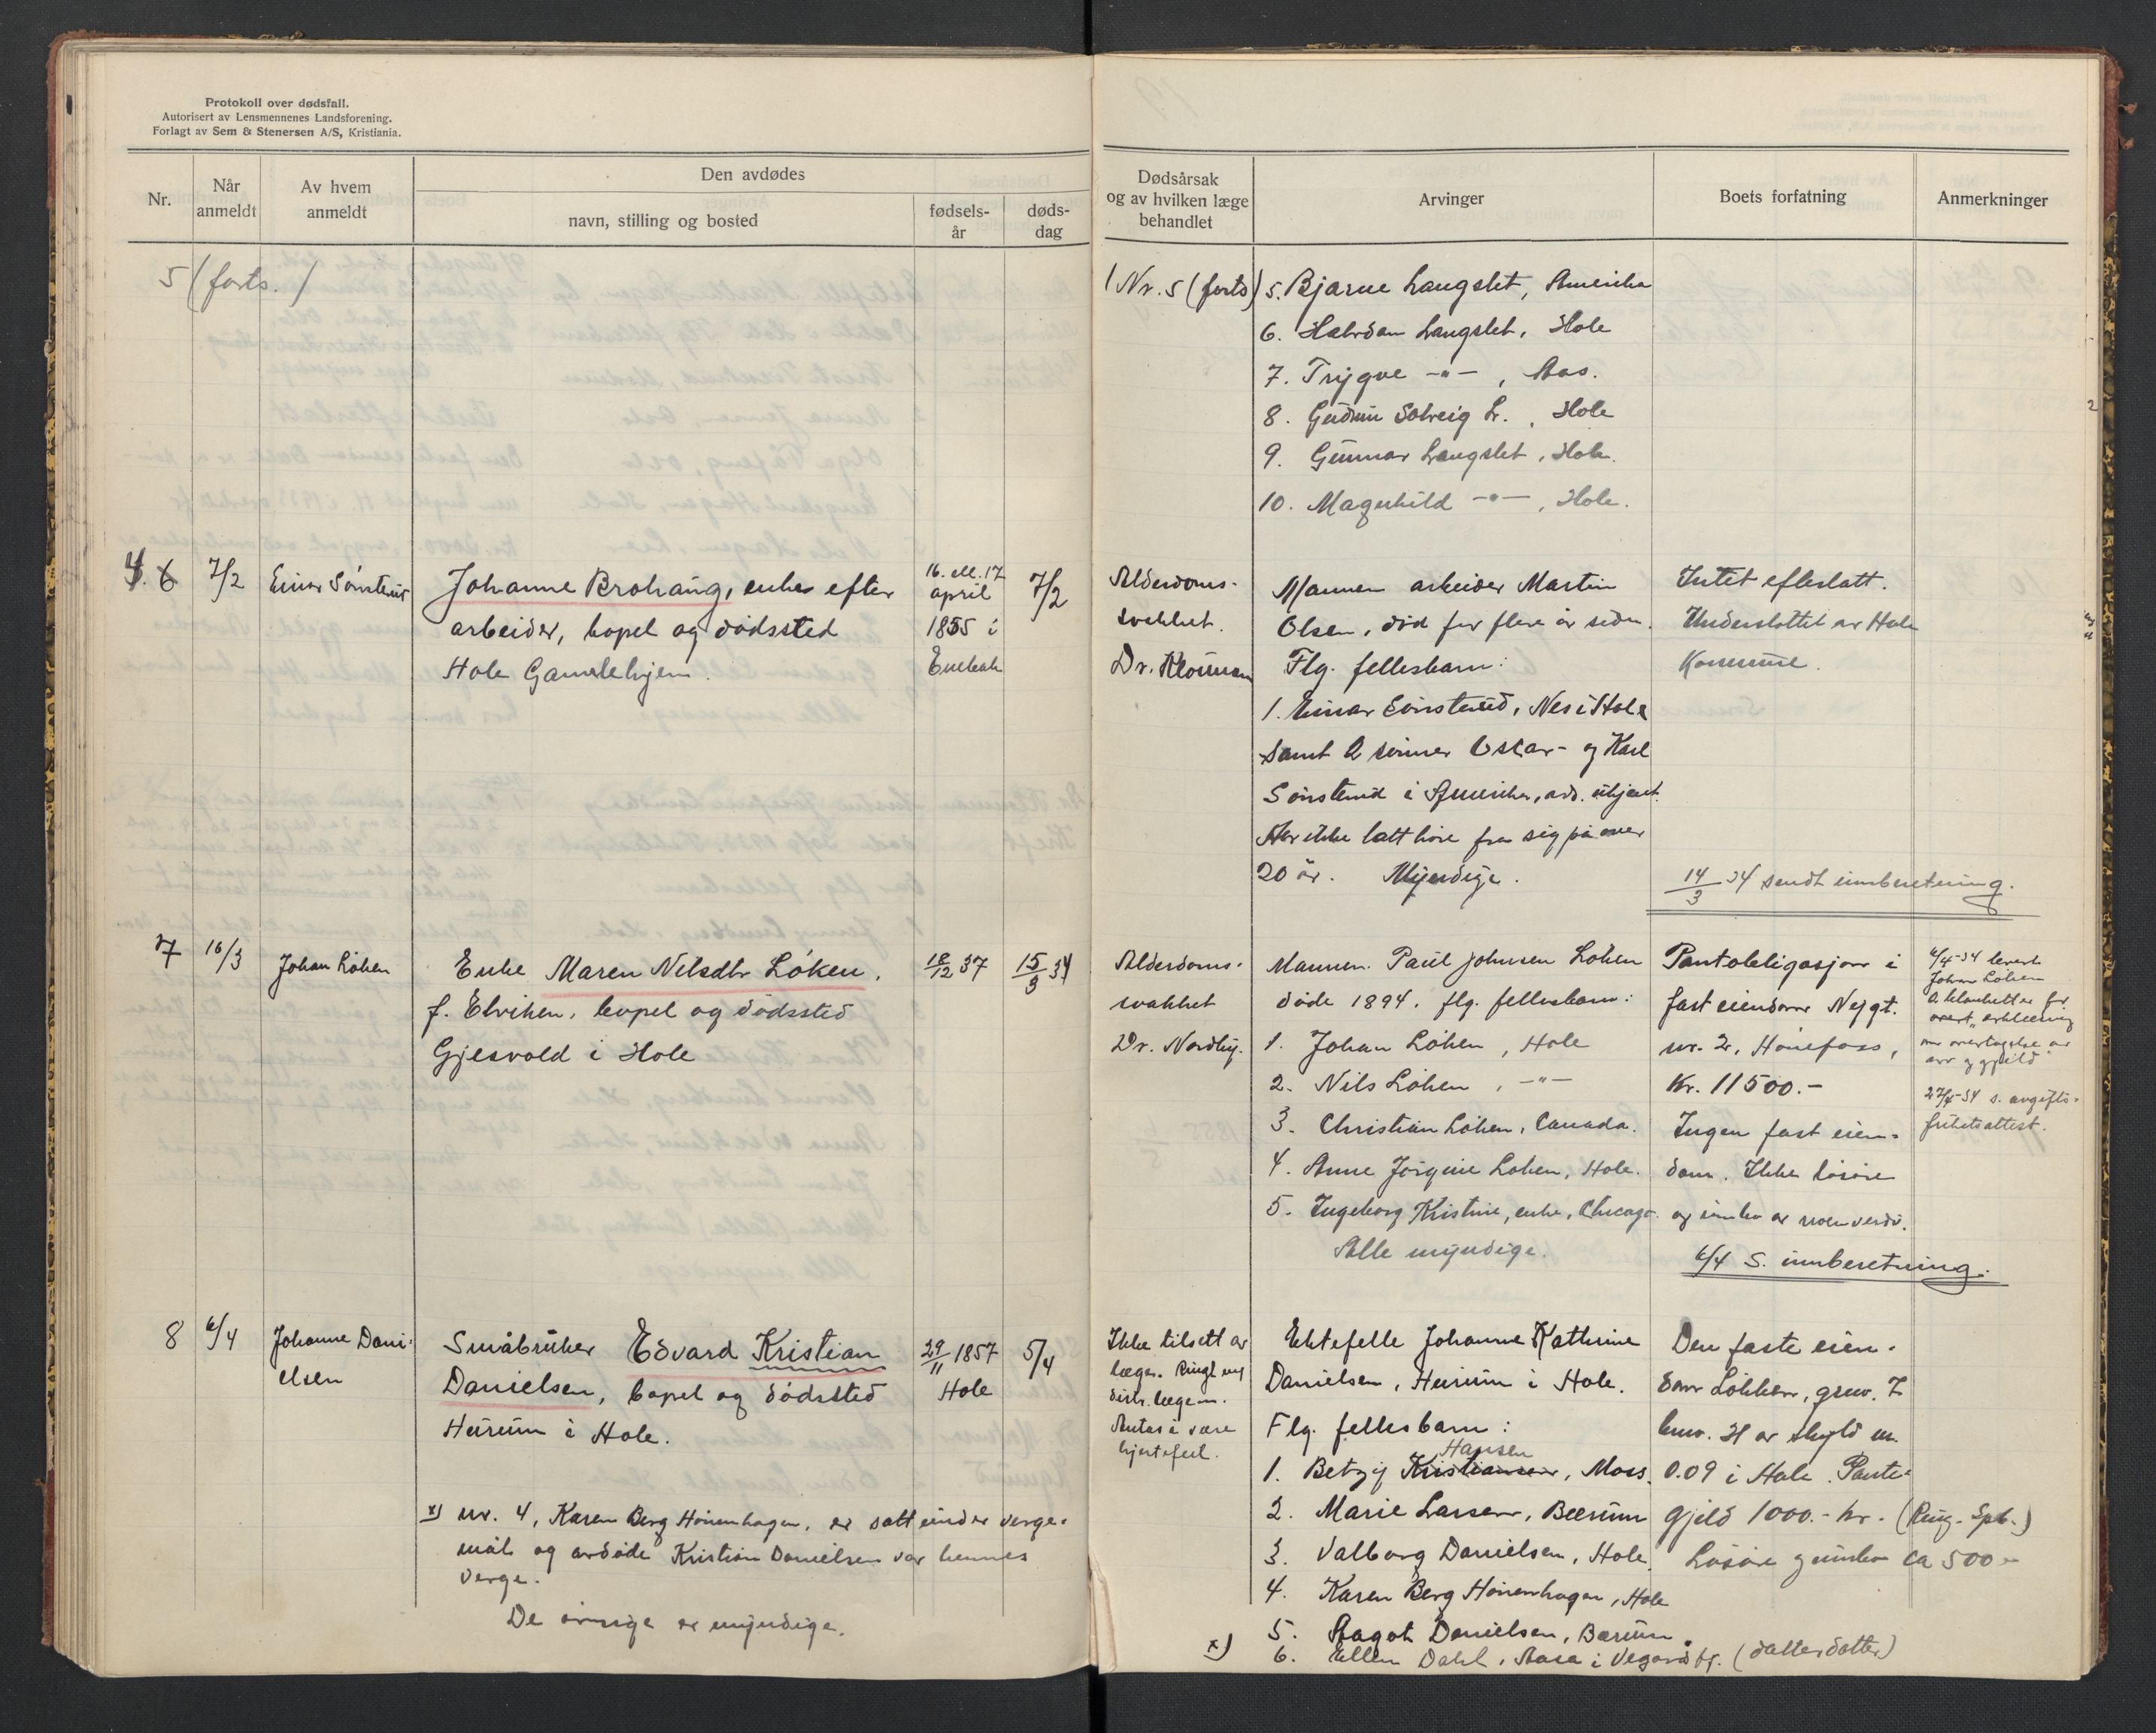 Protokoll over dødsfall.
Autorisert av Lensmennenes Landsforening.
Forlagt av Sem & Stenersen A/S, Kristiania.
Nr.
Når anmeldt
Av hvem anmeldt
Den avdødes
navn, stilling og bosted
fødsels-
år
døds-
dag
Dødsårsak
og av hvilken læge
behandlet
Arvinger
Boets forfatning
Anmerkninger
5 (forts.)
Nr. 5 (forts)
5. Bjarne Langslet, Amerika
6. Halvdan Langslet, Hole
7. Trygve -"- , Aas.
8. Gudrun Solveig L. , Hole
9. Gunnar Langslet, Hole.
10. Magnhild -"- , Hole.
6
7/2
Einar Sønsterud
Johanne Brohaug, enke efter
arbeider, bopel og dødssted
Hole Gamlehjem.
16. ell. 17
april
1855 i
Enebak
7/2
Alderdoms-
svakhet.
Dr. Klouman
Mannen arbeider Martin
Olsen, død for flere år siden.
Flg. fellesbarn:
1. Einar Sønsterud, Nes i Hole
samt 2 sønner Oscar- og Karl
Sønsterud i Amerika, adr. ukjent.
Har ikke latt høre fra sig på over
20 år. Myndige.
Intet efterlatt.
Understøttet av Hole
Kommune.
14/3 34 sendt innberetning.
7
16/3
Johan Løken
Enke Maren Nilsdtr Løken,
f. Elviken, bopel og dødssted
Gjesvold i Hole
18/12 37
15/3 34
Alderdoms-
svakhet
Dr. Nordby.
Mannen Paul Johnsen Løken
døde 1894. flg. fellesbarn:
1. Johan Løken, Hole
2. Nils Løken, -"-
3. Christian Løken, Canada.
4. Anne Jørgine Løken, Hole.
5. Ingeborg Kristine, enke, Chicago.
Alle myndige.
Pantobligasjon i
fast eiendom
nr. 2, Hønefoss,
Kr. 11500.-
Ingen fast eien-
dom. Ikke løsøre
og innbo av noen verdi.
6/4 S. innberetning.
6/4-34 levert
Johan Løken
erklæring
om overtagelse av
arv og gjeld"
27/4-34 s. avgifts-
frihetsattest.
8
6/4
Johanne Dani-
elsen
Småbruker Edvard Kristian
Danielsen, bopel og dødssted
Hurum i Hole.
29/11 1857
Hole
5/4
Ikke tilsett av
læge. Ringt
distr. lægen.
Antas å være
hjertefeil.
Ektefelle Johanne Kathrine
Danielsen, Hurum i Hole.
Flg. fellesbarn:
Hansen
1. Betzy Kristiansen, Moss.
2. Marie Larsen, Bærum
3. Valborg Danielsen, Hole
4. Karen Berg Hønenhagen, Hole
5. Aagot Danielsen, Bærum.
x)
6. Ellen Dahl, Aasa i (datterdatter)
Den faste eien-
dom Løkken, gnr. 7
bnr. 31 av skyld m.
0.09 i Hole. Pante-
gjeld 1000.- kr. (Ring. Spb.)
Løsøre og innbo ca 500.-
x) nr. 4, Karen Berg Hønenhagen, er satt under verge-
mål og avdøde Kristian Danielsen var hennes
verge.
De øvrige er myndige.